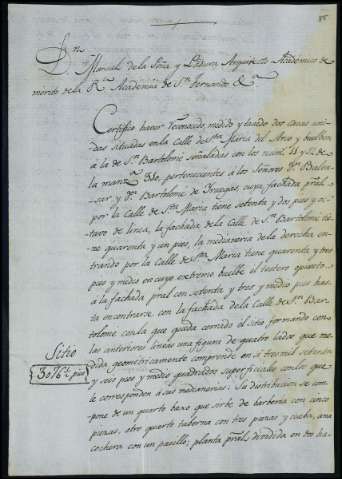 85
Dn. Manuel de la Peña y Padura Arquitecto Académico de
mérito de la Rl. Academia de Sn. Fernando &a.
Certifico haver reconocido, medido y tasado dos casas uni-
das situadas en la Calle de Sta. Maria del Arco y buelben
á la de Sn. Bartolomé señaladas con los num.s 11 y 12 de
la manza. 310, pertenecientes á los Señores Dn. Balta-
sar y Dn. Bartolomé de Bruegas, cuya fachada pral.
por la Calle de Sta. Maria tiene setenta y dos pies y oc-
tavo de linea, la fachada de la Calle de Sn. Bartolomé tie-
ne quarenta y un pies, la medianeria de la derecha en-
trando por la Calle de Sta. Maria tiene quarenta y dos
pies y medio en cuyo extremo recibe el testero quarto
á la fachada pral con setenta y tres y medio pies has-
ta encontrarse con la fachada de la Calle de Sn. Bar-
tolomé con la que queda cerrado el sitio formando con
las anteriores lineas una figura de quatro lados que me-
dida geometricamente comprende en sí tres mil setenta
y seis pies y medio quadrados superficiales con los que
le corresponden á sus medianerias: Su distribucion se com-
pone de un quarto baxo que sirbe de barberia con cinco
piezas, otro quarto taberna con tres piezas y cueba, una
cochera con un pasillo; planta pral. dividida en dos ha-
Sitio
3076½ pies